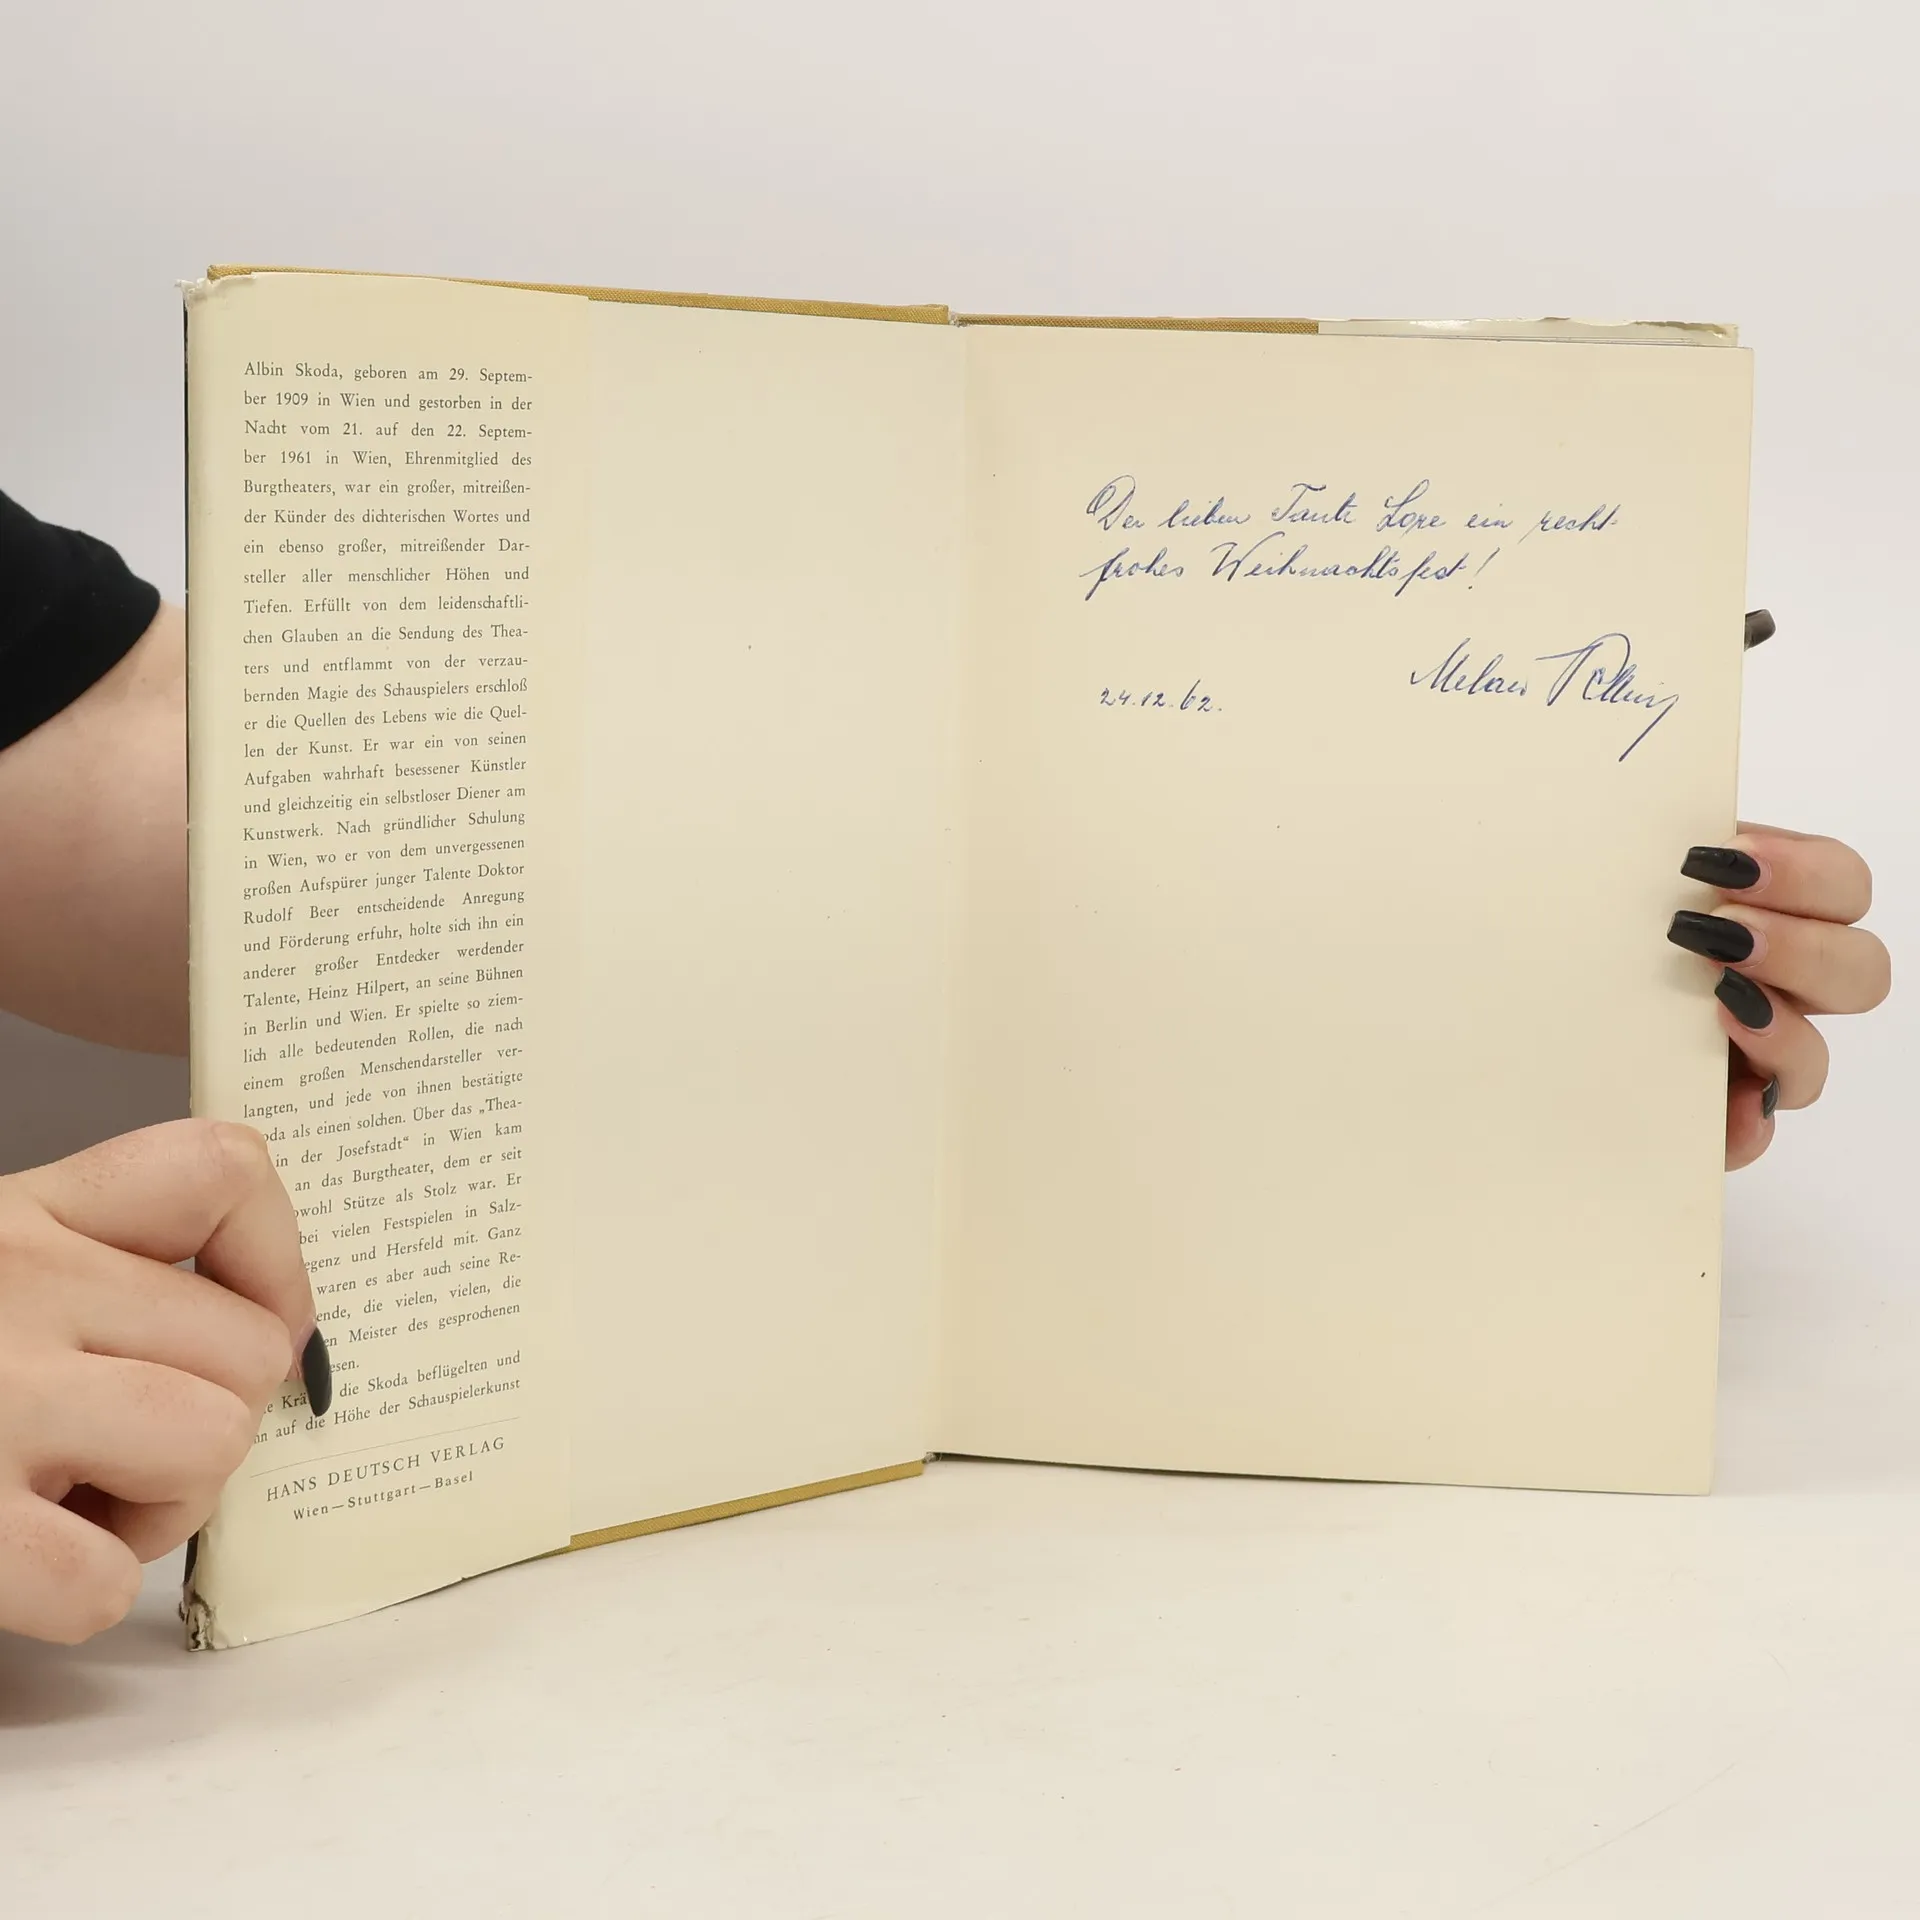 Albin Skoda, geboren am 29. Septem-
ber 1909 in Wien und gestorben in der
Nacht vom 21. auf den 22. Septem-
ber 1961 in Wien, Ehrenmitglied des
Burgtheaters, war ein großer, mitreißen-
der Künder des dichterischen Wortes und
ein ebenso großer, mitreißender Dar-
steller aller menschlicher Höhen und
Tiefen. Erfüllt von dem leidenschaftli-
chen Glauben an die Sendung des Thea-
ters und entflammt von der verzau-
bernden Magie des Schauspielers erschloß
er die Quellen des Lebens wie die Quel-
len der Kunst. Er war ein von seinen
Aufgaben wahrhaft besessener Künstler
und gleichzeitig ein selbstloser Diener am
Kunstwerk. Nach gründlicher Schulung
in Wien, wo er von dem unvergessenen
großen Aufspürer junger Talente Doktor
Rudolf Beer entscheidende Anregung
und Förderung erfuhr, holte sich ihn ein
anderer großer Entdecker werdender
Talente, Heinz Hilpert, an seine Bühnen
in Berlin und Wien. Er spielte so ziem-
lich alle bedeutenden Rollen, die nach
einem großen Menschendarsteller ver-
langten, und jede von ihnen bestätigte
oda als einen solchen. Über das „Thea-
in der Josefstadt“ in Wien kam
an das Burgtheater, dem er seit
owohl Stütze als Stolz war. Er
bei vielen Festspielen in Salz-
egenz und Hersfeld mit. Ganz
waren es aber auch seine Re-
ende, die vielen, vielen, die
en Meister des gesprochenen
esen.
e Krä die Skoda beflügelten und
hn auf die Höhe der Schauspielerkunst
HANS DEUTSCH VERLAG
Wien—Stuttgart—Basel
Der lieben Tante Lore ein recht
frohes Weihnachtsfest!
24.12.62.